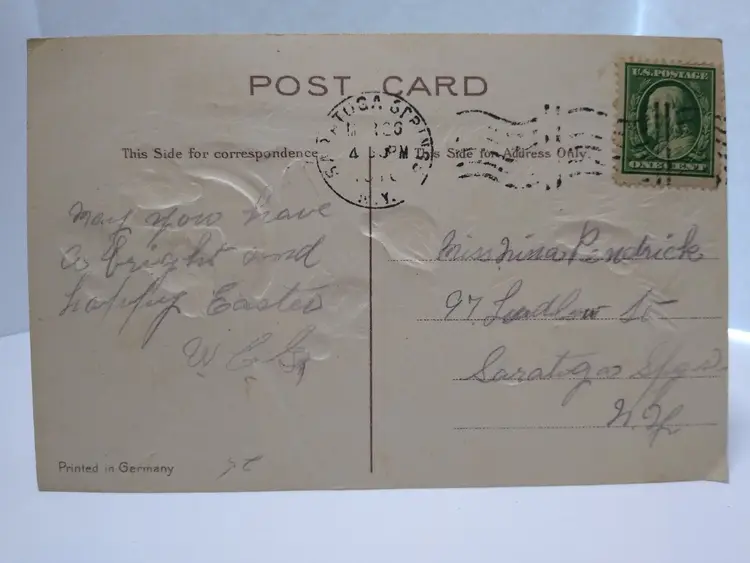 POST CARD
SARATOGA SPRINGS
MAR 26
4 PM
N.Y.
U.S. POSTAGE
ONE CENT
This Side for correspondence
This Side for Address Only.
May you have
a bright and
happy Easter
Miss Nina Kendrick
97 Ludlow St
Saratoga Spgs
N.Y.
Printed in Germany